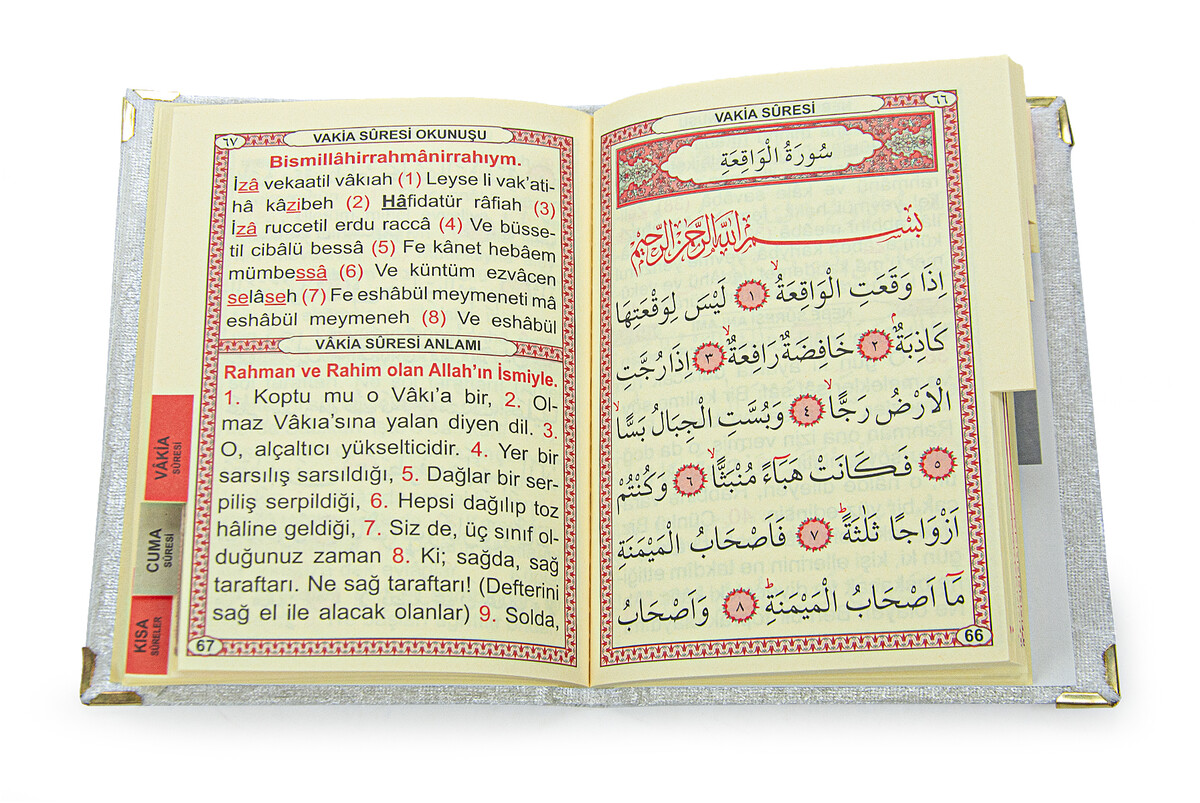 ٦٦
VAKİA SÛRESİ
سُورَةُ الْوَاقِعَةِ
بِسْمِ اللّٰهِ الرَّحْمٰنِ الرَّحِيمِ
اِذَا وَقَعَتِ الْوَاقِعَةُۙ ١ لَيْسَ لِوَقْعَتِهَا
كَاذِبَةٌۢ ٢ خَافِضَةٌ رَافِعَةٌۙ ٣ اِذَا رُجَّتِ
الْاَرْضُ رَجًّاۙ ٤ وَبُسَّتِ الْجِبَالُ بَسًّاۙ
٥ فَكَانَتْ هَبَٓاءً مُنْبَثًّاۙ ٦ وَكُنْتُمْ
اَزْوَاجًا ثَلٰثَةًۜ ٧ فَاَصْحَابُ الْمَيْمَنَةِ
مَٓا اَصْحَابُ الْمَيْمَنَةِۜ ٨ وَاَصْحَابُ
66
٦٧
VAKİA SÛRESİ OKUNUŞU
Bismillâhirrahmânirrahıym.
İzâ vekaatil vâkıah (1) Leyse li vak’ati-
hâ kâzibeh (2) Hâfidatür râfiah (3)
İzâ ruccetil erdu raccâ (4) Ve büsse-
til cibâlü bessâ (5) Fe kânet hebâem
mümbessâ (6) Ve küntüm ezvâcen
selâseh (7) Fe eshâbül meymeneti mâ
eshâbül meymeneh (8) Ve eshâbül
VÂKİA SÛRESİ ANLAMI
Rahman ve Rahim olan Allah’ın İsmiyle.
1. Koptu mu o Vâkı’a bir, 2. Ol-
maz Vâkıa’sına yalan diyen dil. 3.
O, alçaltıcı yükselticidir. 4. Yer bir
sarsılış sarsıldığı, 5. Dağlar bir ser-
piliş serpildiği, 6. Hepsi dağılıp toz
hâline geldiği, 7. Siz de, üç sınıf ol-
duğunuz zaman 8. Ki; sağda, sağ
taraftarı. Ne sağ taraftarı! (Defterini
sağ el ile alacak olanlar) 9. Solda,
67
VÂKİA
SÛRESİ
CUMA
SÛRESİ
KISA
SÛRELER